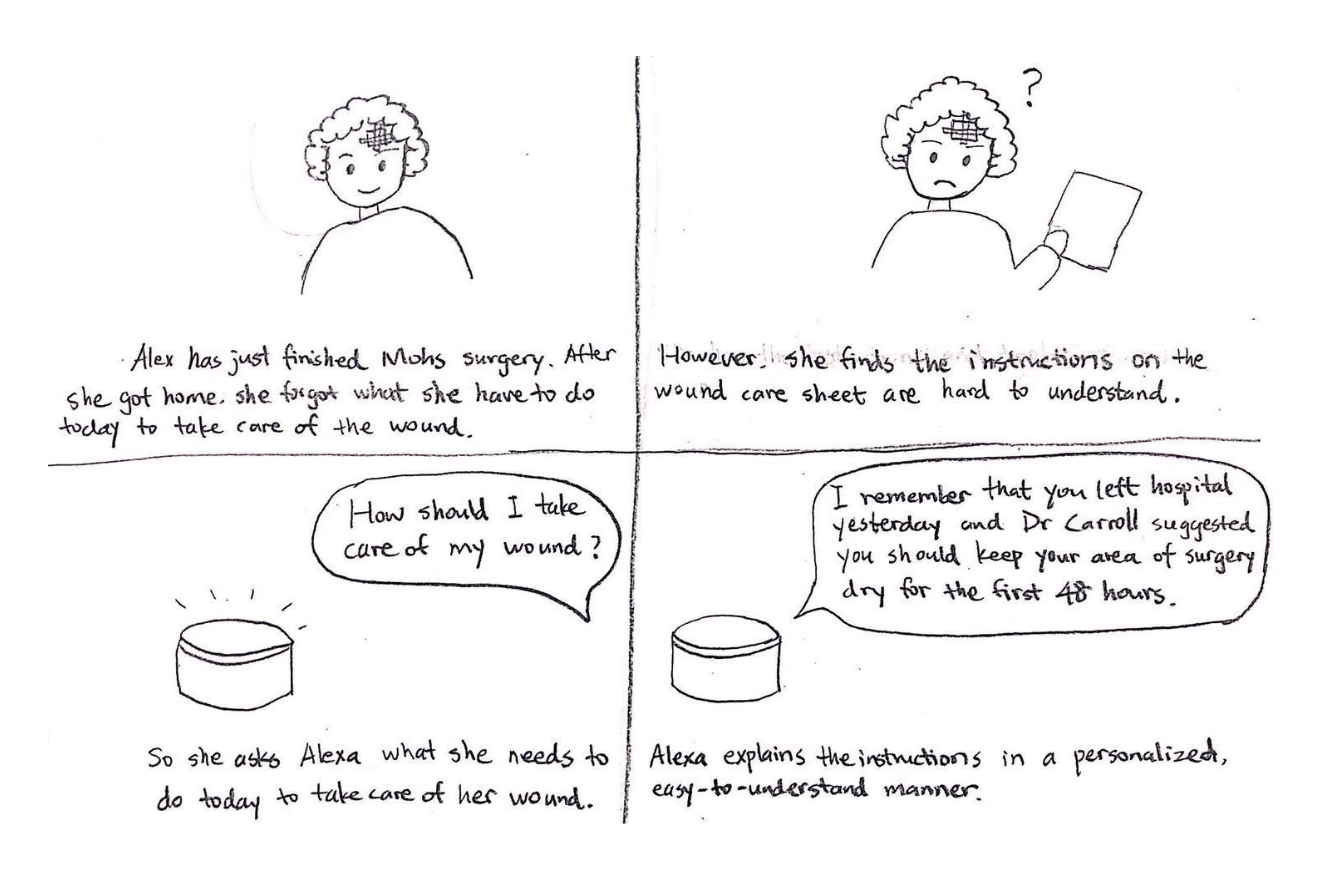 Alex has just finished Mohs surgery. After
she got home, she forgot what she have to do
today to take care of the wound.
?
However, she finds the instructions on the
wound care sheet are hard to understand.
How should I take
care of my wound?
So she asks Alexa what she needs to
do today to take care of her wound.
I remember that you left hospital
yesterday and Dr Carroll suggested
you should keep your area of surgery
dry for the first 48 hours.
Alexa explains the instructions in a personalized,
easy-to-understand manner.